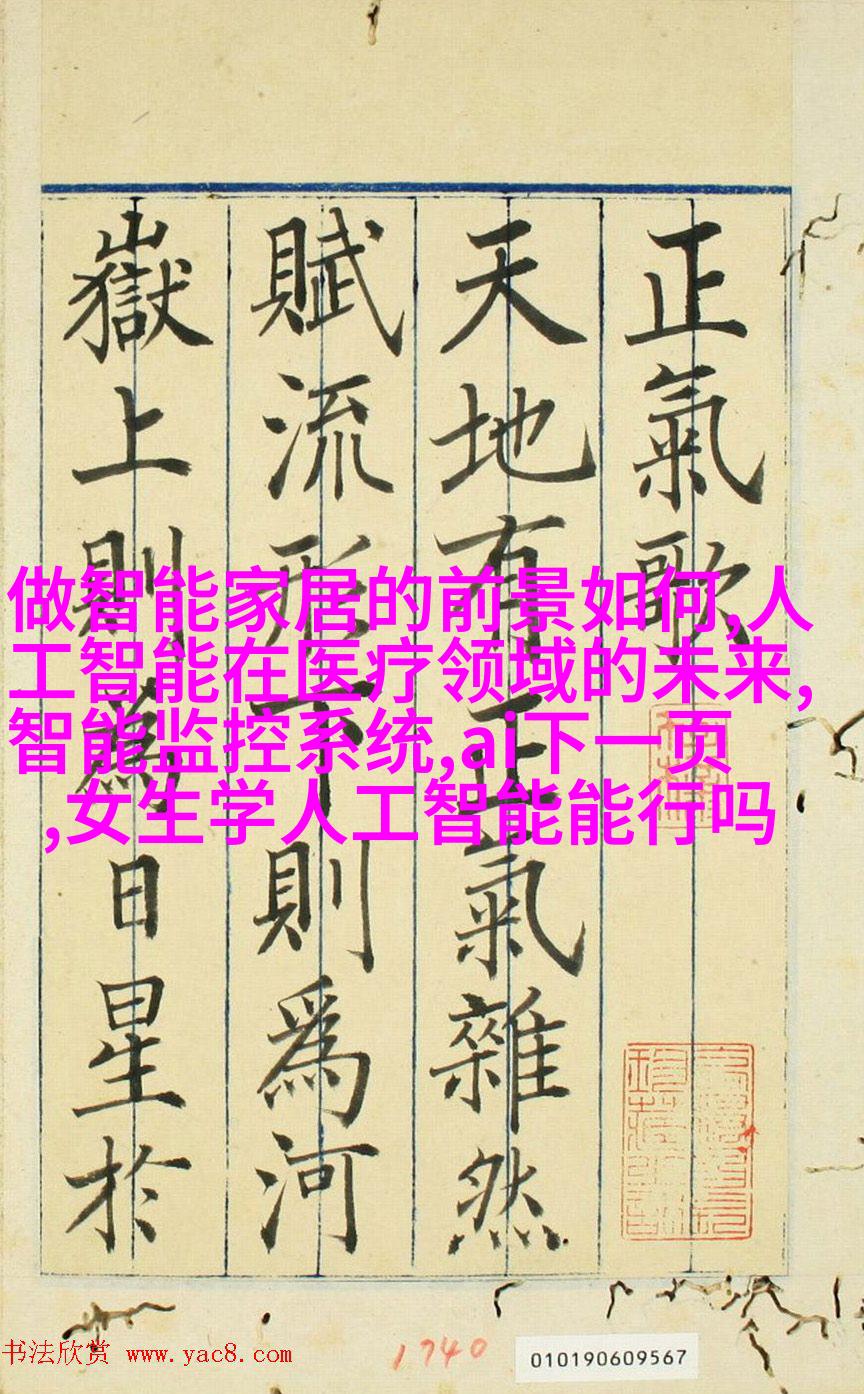 正氣歌
天地有正氣雜然
賦流形下則爲河
嶽上則爲日星於
做智能家居的前景如何,人
工智能在医疗领域的未来,
智能监控系统,ai下一页
,女生学人工智能能行吗
书法欣赏 www.yac8.com
1740
010190609567